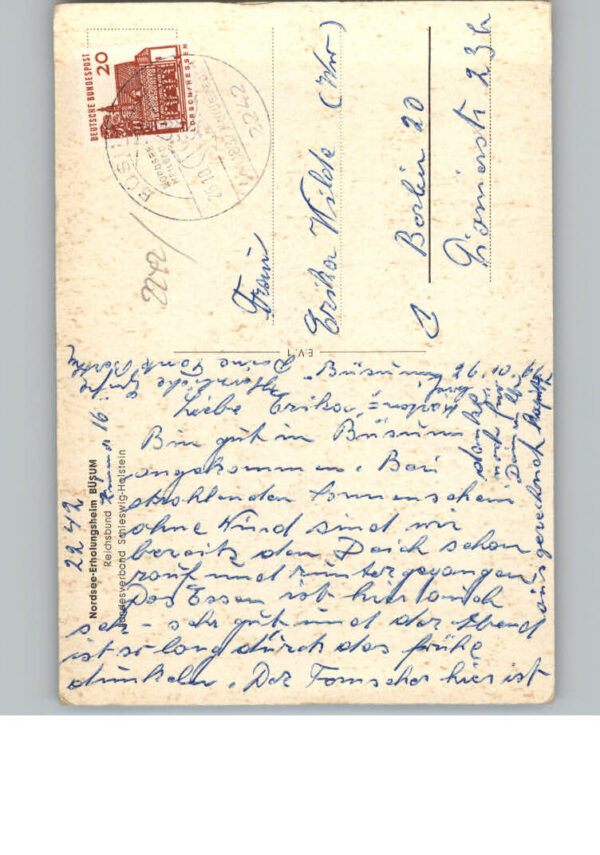 DEUTSCHE BUNDESPOST
20
LORSCH/HESSEN
2242
Frau
Erika Wilde (Ww)
1 Berlin 20
Pionierstr. 23h
E.V.
2242
Nordsee-Erholungsheim BÜSUM
Reichsbund
Landesverband Schleswig-Holstein
Büsum 26.10.
Liebe Erika,
Bin gut in Büsum
angekommen. Bei
strahlenden Sonnenschein
ohne Wind sind wir
bereits den Deich schon
rauf und runtergegangen
Das Essen ist hier auch
sehr - sehr gut und der Abend
ist so lang durch das frühe
dunkeln. Der Fernseher hier ist
ausgerechnet kaputt
Herzliche Grüße
Deine